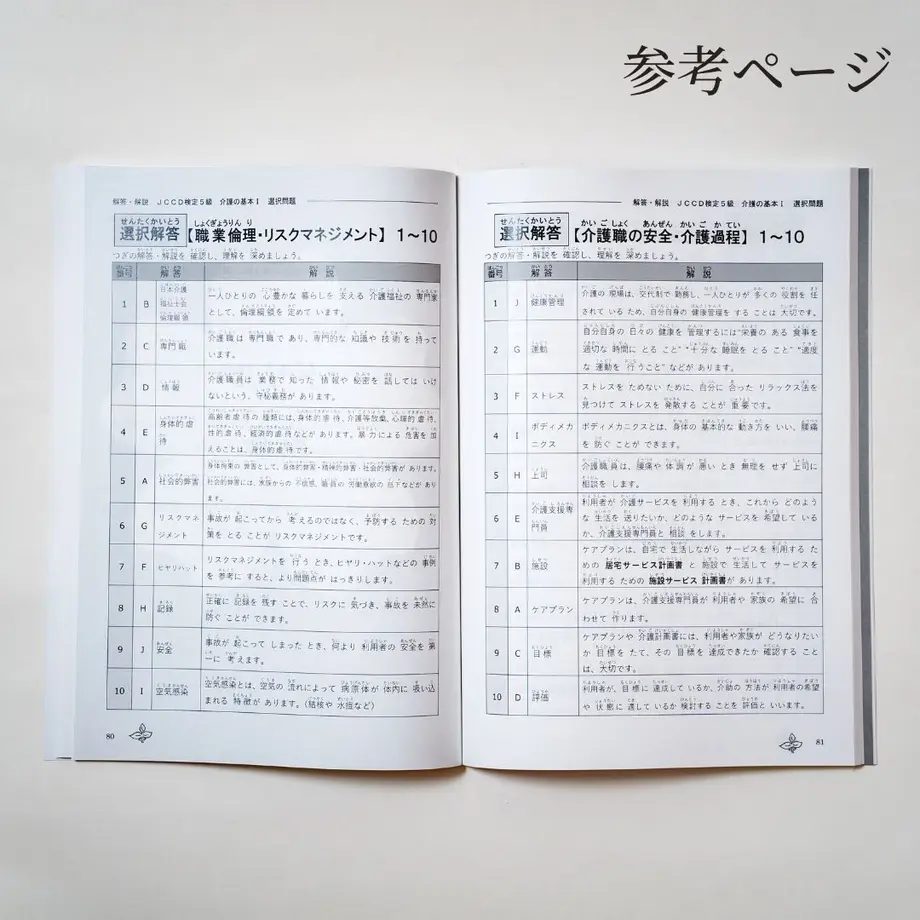 参考ページ
解答・解説 JCCD検定5級 介護の基本Ⅰ 選択問題
せんたくかいとう しょくぎょうりんり
選択解答【職業倫理・リスクマネジメント】1〜10
つぎの解答・解説を 確認し、理解を 深めましょう。
番号 解答 解説
1 B 日本介護福祉士会倫理綱領
一人ひとりの 心豊かな 暮らしを 支える 介護福祉の 専門家
として、倫理綱領を 定めて います。
2 C 専門職
介護職は 専門職で あり、専門的な 知識や 技術を 持って
います。
3 D 情報
介護職員は 業務で 知った 情報や 秘密を 話しては いけ
ないという、守秘義務が あります。
4 E 身体的虐待
高齢者虐待の 種類には、身体的虐待、介護等放棄、心理的虐待、
性的虐待、経済的虐待などが あります。暴力による 危害を 加
えることは、身体的虐待です。
5 A 社会的弊害
身体拘束の 弊害として、身体的弊害・精神的弊害・社会的弊害が あります。
社会的弊害には、家族からの 不信感、職員の 労働意欲の 低下などがあり
ます。
6 G リスクマネジメント
事故が 起こってから 考えるのではなく、予防する ための 対
策を とる ことが リスクマネジメントです。
7 F ヒヤリハット
リスクマネジメントを 行う とき、ヒヤリ・ハットなどの 事例
を 参考に すると、より 問題点が はっきりします。
8 H 記録
正確に 記録を 残す ことで、リスクに 気づき、事故を 未然に
防ぐ ことが できます。
9 J 安全
事故が 起こって しまった とき、何より 利用者の 安全を 第
一に 考えます。
10 I 空気感染
空気感染とは、空気の 流れによって 病原体が 体内に 吸い込
まれる 特徴が あります。(結核や 水痘など)
80
解答・解説 JCCD検定5級 介護の基本Ⅰ 選択問題
せんたくかいとう かいごしょく あんぜん かいごかてい
選択解答【介護職の安全・介護過程】1〜10
つぎの解答・解説を 確認し、理解を 深めましょう。
番号 解答 解説
1 J 健康管理
介護の 現場は、交代制で 勤務し、一人ひとりが 多くの 役割を 任
されて いる ため、自分自身の 健康管理を する ことは 大切です。
2 G 運動
自分自身の 日々の 健康を 管理するには"栄養の ある 食事を
適切な 時間に とる こと""十分な 睡眠を とる こと""適度
な 運動を 行うこと"などが あります。
3 F ストレス
ストレスを ためない ために、自分に 合った リラックス法を
見つけて ストレスを 発散する ことが 重要です。
4 I ボディメカニクス
ボディメカニクスとは、身体の 基本的な 動き方を いい、腰痛
を 防ぐ ことが できます。
5 H 上司
介護職員は、腰痛や 体調が 悪い とき 無理を せず 上司に
相談を します。
6 E 介護支援専門員
利用者が 介護サービスを 利用する とき、これから どのよう
な 生活を 送りたいか、どのような サービスを 希望して いる
か、介護支援専門員と 相談 をします。
7 B 施設
ケアプランは、自宅で 生活しながら サービスを 利用する た
めの 居宅サービス計画書 と 施設で 生活して サービスを
利用する ための 施設サービス 計画書が あります。
8 A ケアプラン
ケアプランは、介護支援専門員が 利用者や 家族の 希望に 合
わせて 作ります。
9 C 目標
ケアプランや 介護計画書には、利用者や家族が どうなりたい
か 目標を たて、その 目標を 達成できたか 確認する こと
は、大切です。
10 D 評価
利用者が、目標に 達成して いるか、介助の 方法が 利用者の希望
や 状態に 適して いるか 検討する ことを 評価と いいます。
81